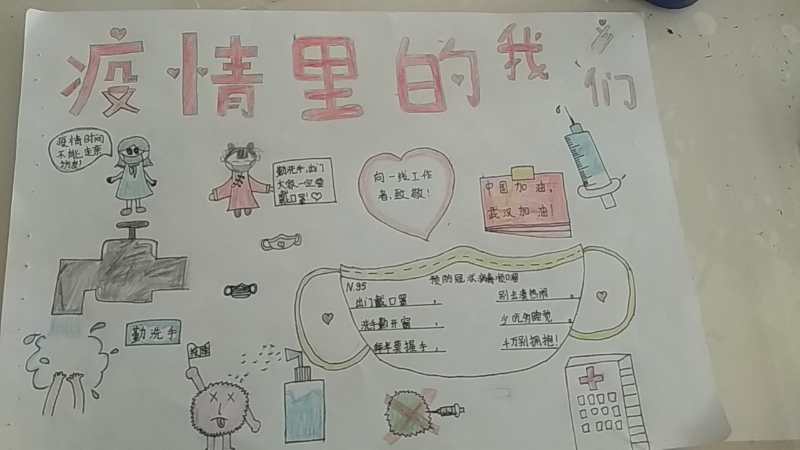 疫情里的我们
疫情时间
不能走亲
访友!
勤洗手,出门
大家一定要
戴口罩!
向一线工作
者,致敬!
中国加油,
武汉加油!
N.95
预防冠状病毒顺口溜
出门戴口罩,
别去凑热闹。
洗手勤开窗,
少吃多睡觉,
握手,
千万别拥抱!
勤洗手